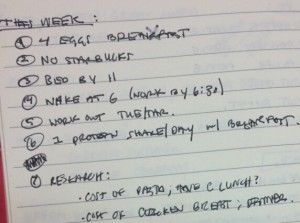 THIS WEEK:
① 4 EGGS BREAKFAST
② NO STARBUCKS
③ BED BY 11
④ WAKE AT 6 (WORK BY 6:30)
⑤ WORK OUT TUE/
⑥ 1 PROTEIN SHAKE/DAY W/ BREAKFAST.
⑦ RESEARCH:
· COST OF PASTA, C LUNCH?
· COST OF CHICKEN BREAST, DINNER.